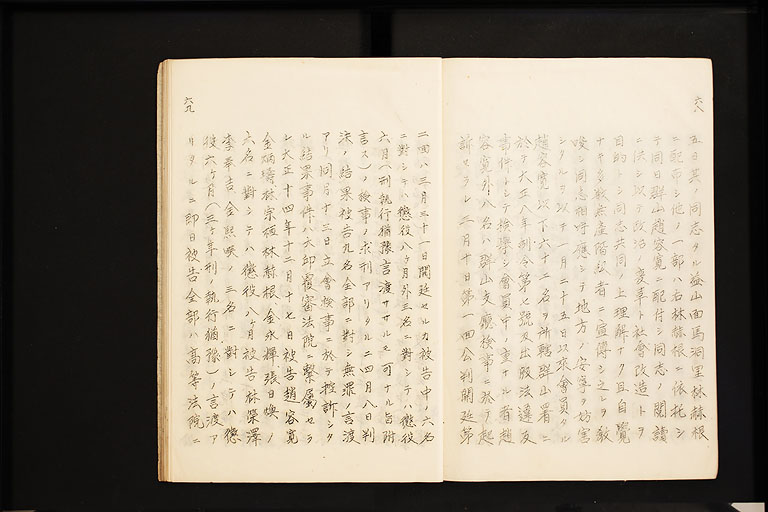 六八
五日其ノ同志タル益山面馬洞里林赫根
ニ配布シ他ノ一部ハ右林赫根ニ依托シ
テ同日群山趙容寬ニ配付シ同志ノ閲讀
ニ供シ以テ政治ノ変革ト社會改造トヲ
目的トシ同志共同ノ上理解ナク且自覺
ナキ多数無産階級者ニ宣傳シ之レヲ教
唆シ同志相呼應シテ地方ノ安寧ヲ妨害
シタルヲ以テ一月二十五日以來會員タル
趙容寬以下六十二名ヲ所轄群山署ニ
於テ大正八年制令第七號及出版法違反
事件トシテ檢擧シ會員中ノ重ナル者趙
容寬外八名ハ群山支廳検事ニ於テ起
訴セラレ三月十日第一回公判開廷第
六九
二回ハ三月三十一日開廷セルカ被告中ノ六名
ニ對シテハ懲役八ヶ月外三名ニ對シテハ懲役
六月(刑執行猶豫言渡ササルモ可ナル旨附
言ス)ノ検事ノ求刑アリタルニ四月八日判
決ノ結果被告九名全部ニ對シ無罪ノ言渡
アリ同月十三日立會検事ニ於テ控訴シタ
ル結果事件ハ大邱覆審法院ニ繫属セラ
レ大正十四年十二月十七日被告趙容寬
金炳璹林宗桓林赫根金永輝張日煥ノ
六名ニ對シテハ懲役八ヶ月被告林榮澤
李平吉金熙暎ノ三名ニ對シテハ懲
役六ヶ月(三ヶ年刑ノ執行猶豫)ノ言渡ア
リタルニ即日被告全部ハ高等法院ニ